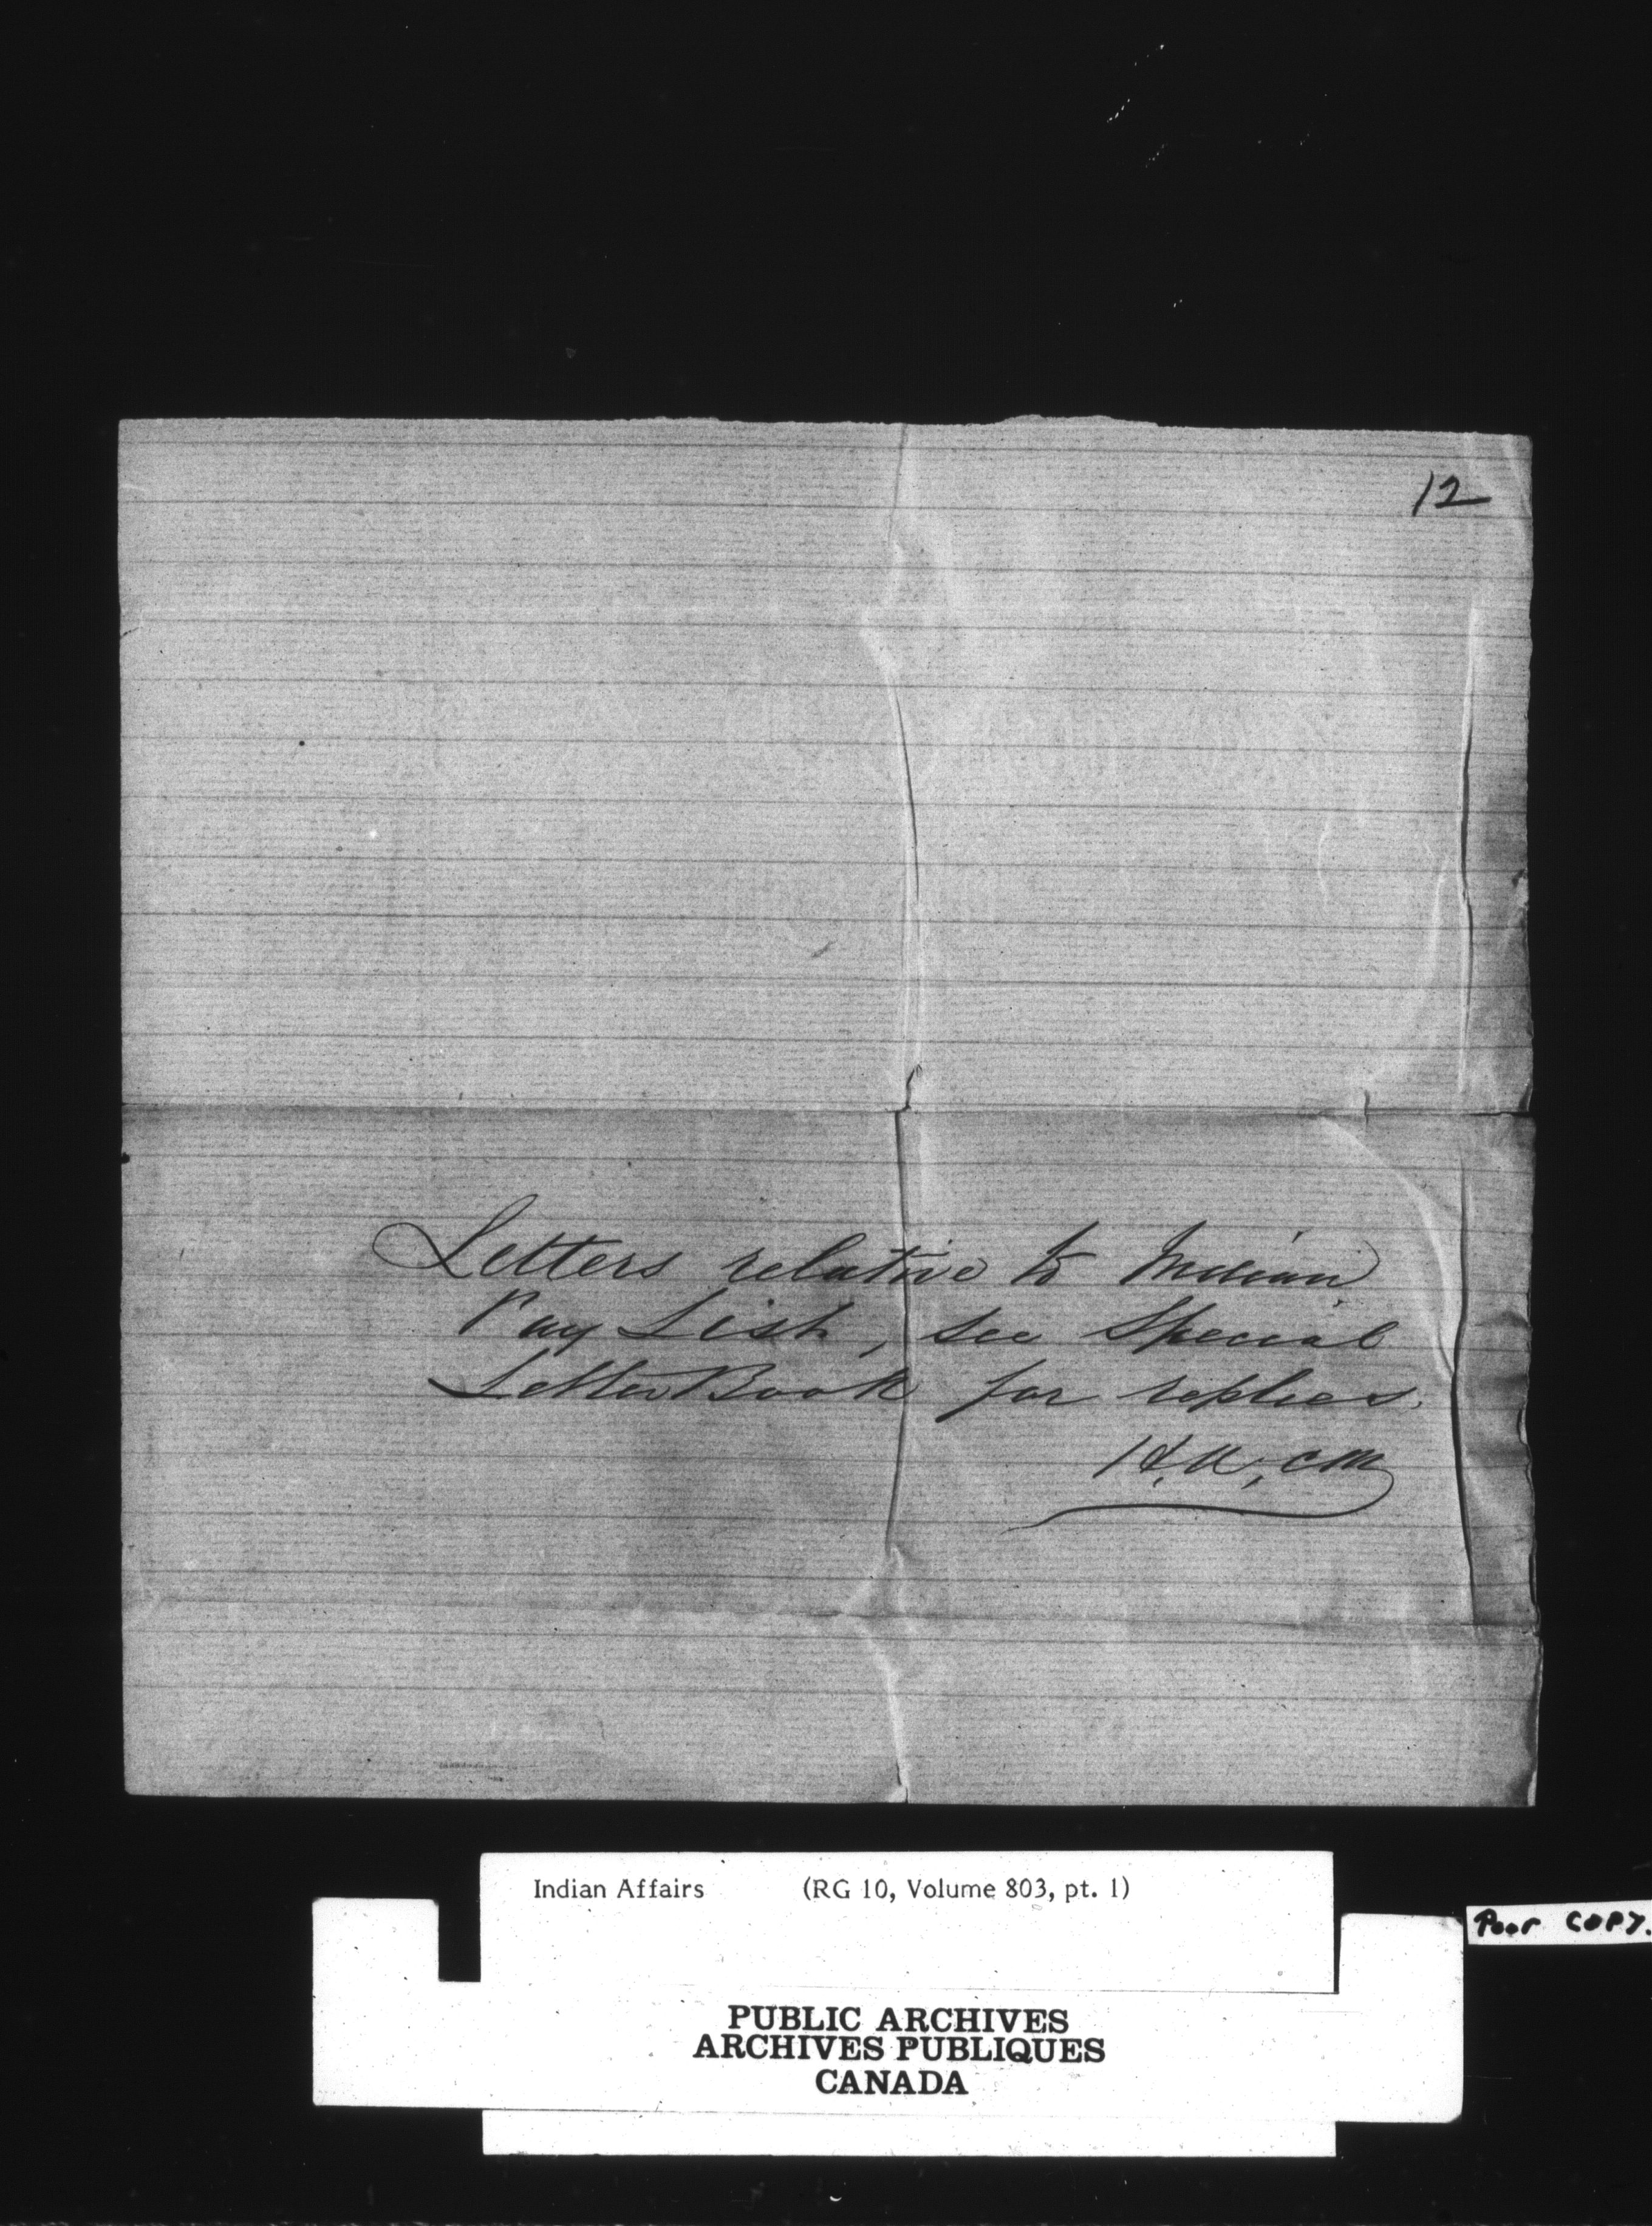 12
Letters relative to Indian
Pay List, see Special
Letter Book for replies.
Indian Affairs (RG 10, Volume 803, pt. 1)
Poor COPY.
PUBLIC ARCHIVES
ARCHIVES PUBLIQUES
CANADA